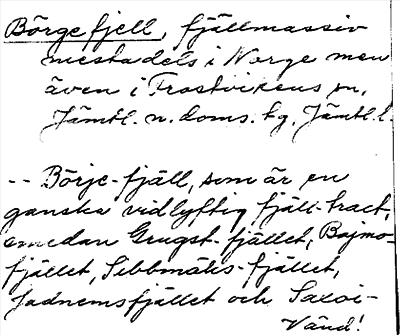 Börgefjell, fjällmassiv
mestadels i Norge men
även i Frostvikens sn,
Jämtl. n. doms. tg, Jämtl. l.
-- Börje-fjäll, som är en
ganska vidlyftig fjäll-tract,
emedan Grugst-fjället, Bajmo-
fjället, Sibbmätis-fjället,
Jadnemsfjället och Saxoi-
Vänd!